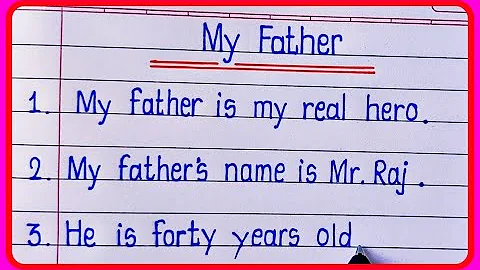 My Father
1. My father is my real hero.
2. My father's name is Mr. Raj.
3. He is forty years old